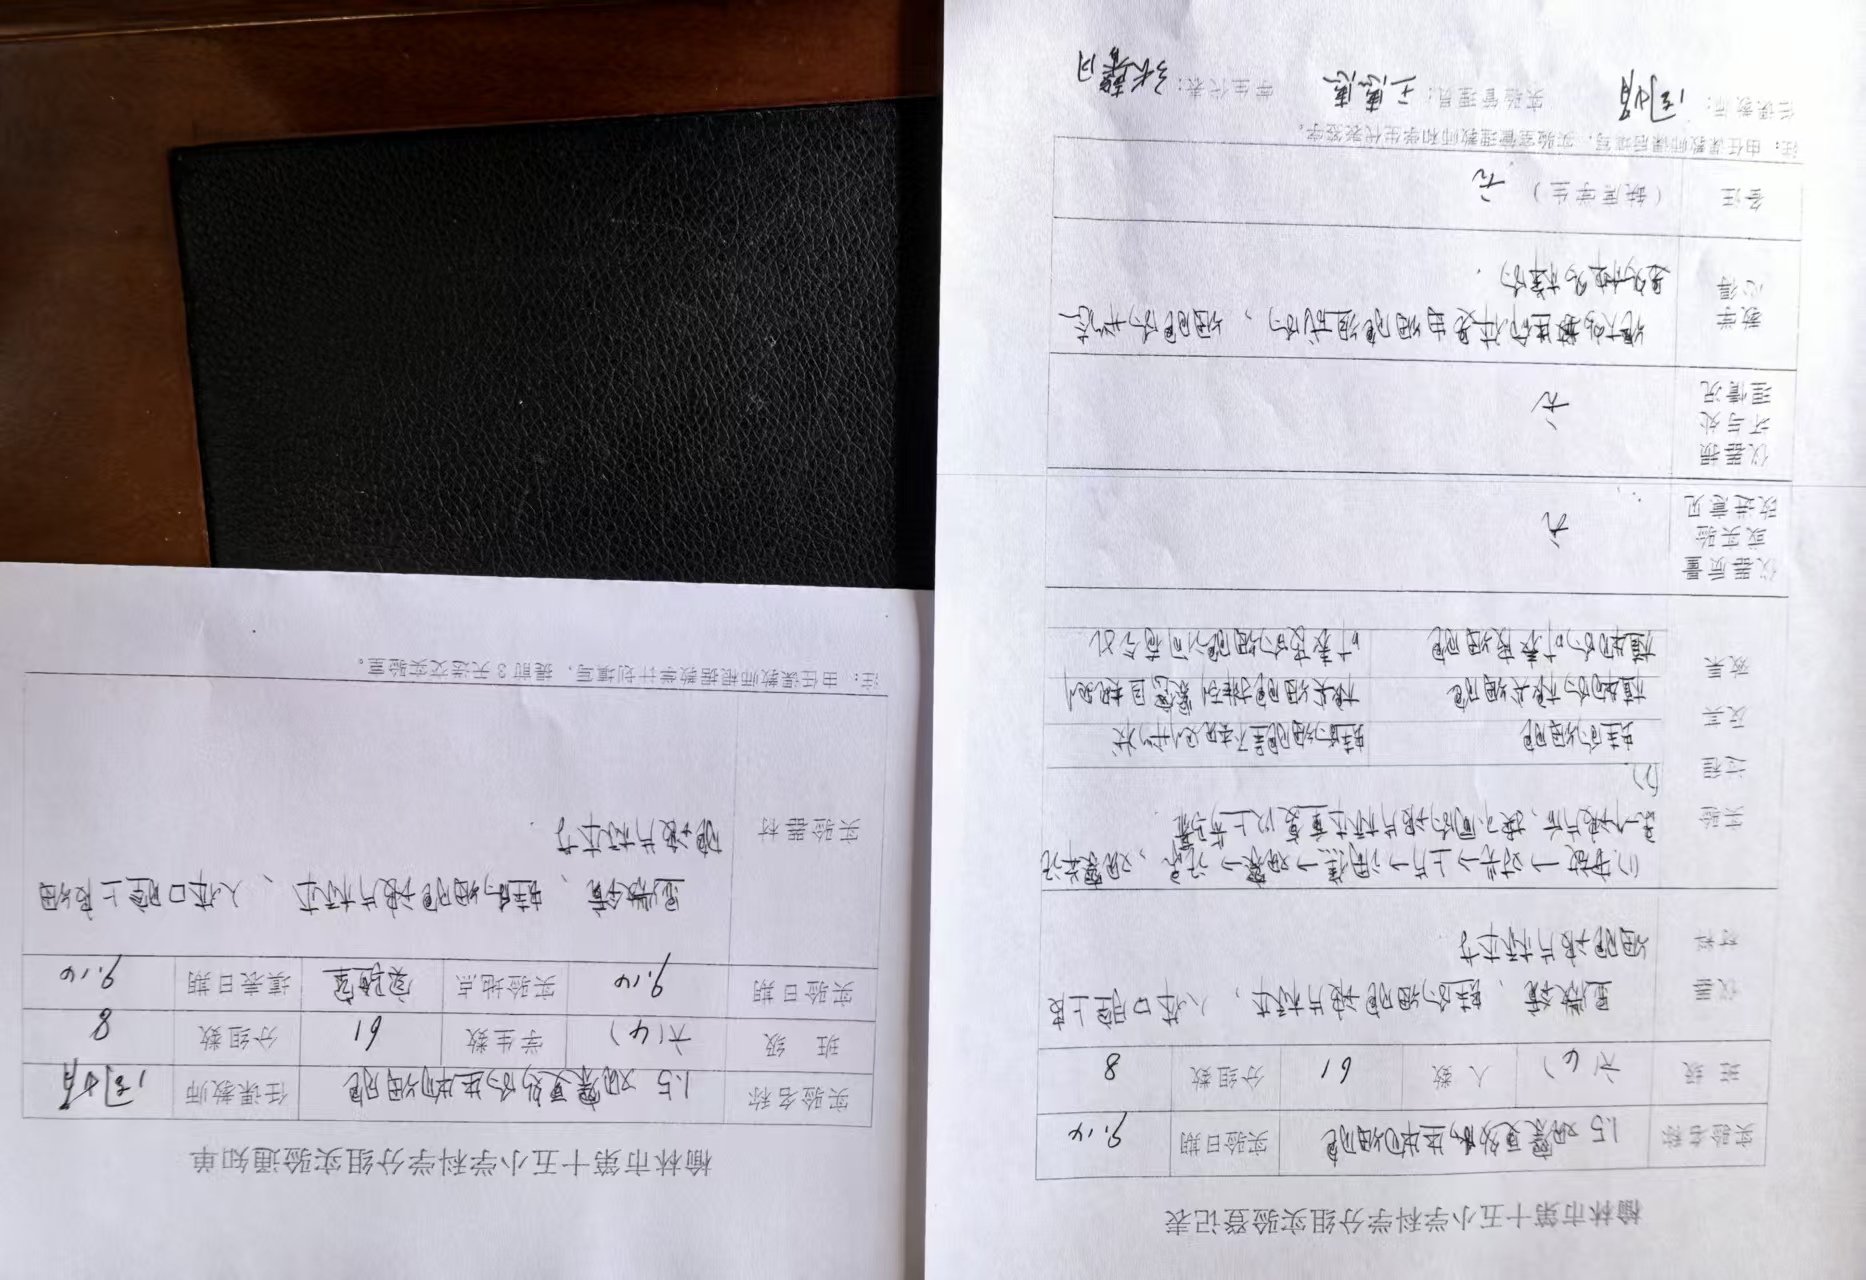 榆林市第十五小学科学分组实验登记表
实验名称 1.5 观察更多的生物细胞 实验日期 9.14
班级 六(4) 人数 61 分组数 8
仪器材料 显微镜、蛙的细胞玻片标本、人体口腔上皮
细胞玻片标本等
实验过程及其效果
(1) 安放→对光→上片→调焦→观察→记录，观察并记
录一个玻片后，换不同的玻片标本重复以上步骤.
(2)
蛙的细胞 蛙的细胞呈不规则形状
植物的根尖细胞 根尖细胞排列紧密且规则
植物的叶表皮细胞 叶表皮的细胞间有气孔
仪器质量或实验改进意见 无
仪器损坏与处理情况 无
教学心得 绝大多数生命体是由细胞组成的、细胞的形态
是多种多样的.
备注 （缺席学生） 无
注：由任课教师课后填写，实验室管理教师和学生代表签字。
任课教师： 实验管理员： 学生代表：
榆林市第十五小学科学分组实验通知单
实验名称 1.5 观察更多的生物细胞 任课教师
班 级 六(4) 学生数 61 分组数 8
实验日期 9.14 实验地点 实验室 填表日期 9.14
实验器材 显微镜、蛙的细胞玻片标本、人体口腔上皮细
胞玻片标本等.
注：由任课教师根据教学计划填写，提前 3 天送交实验室。